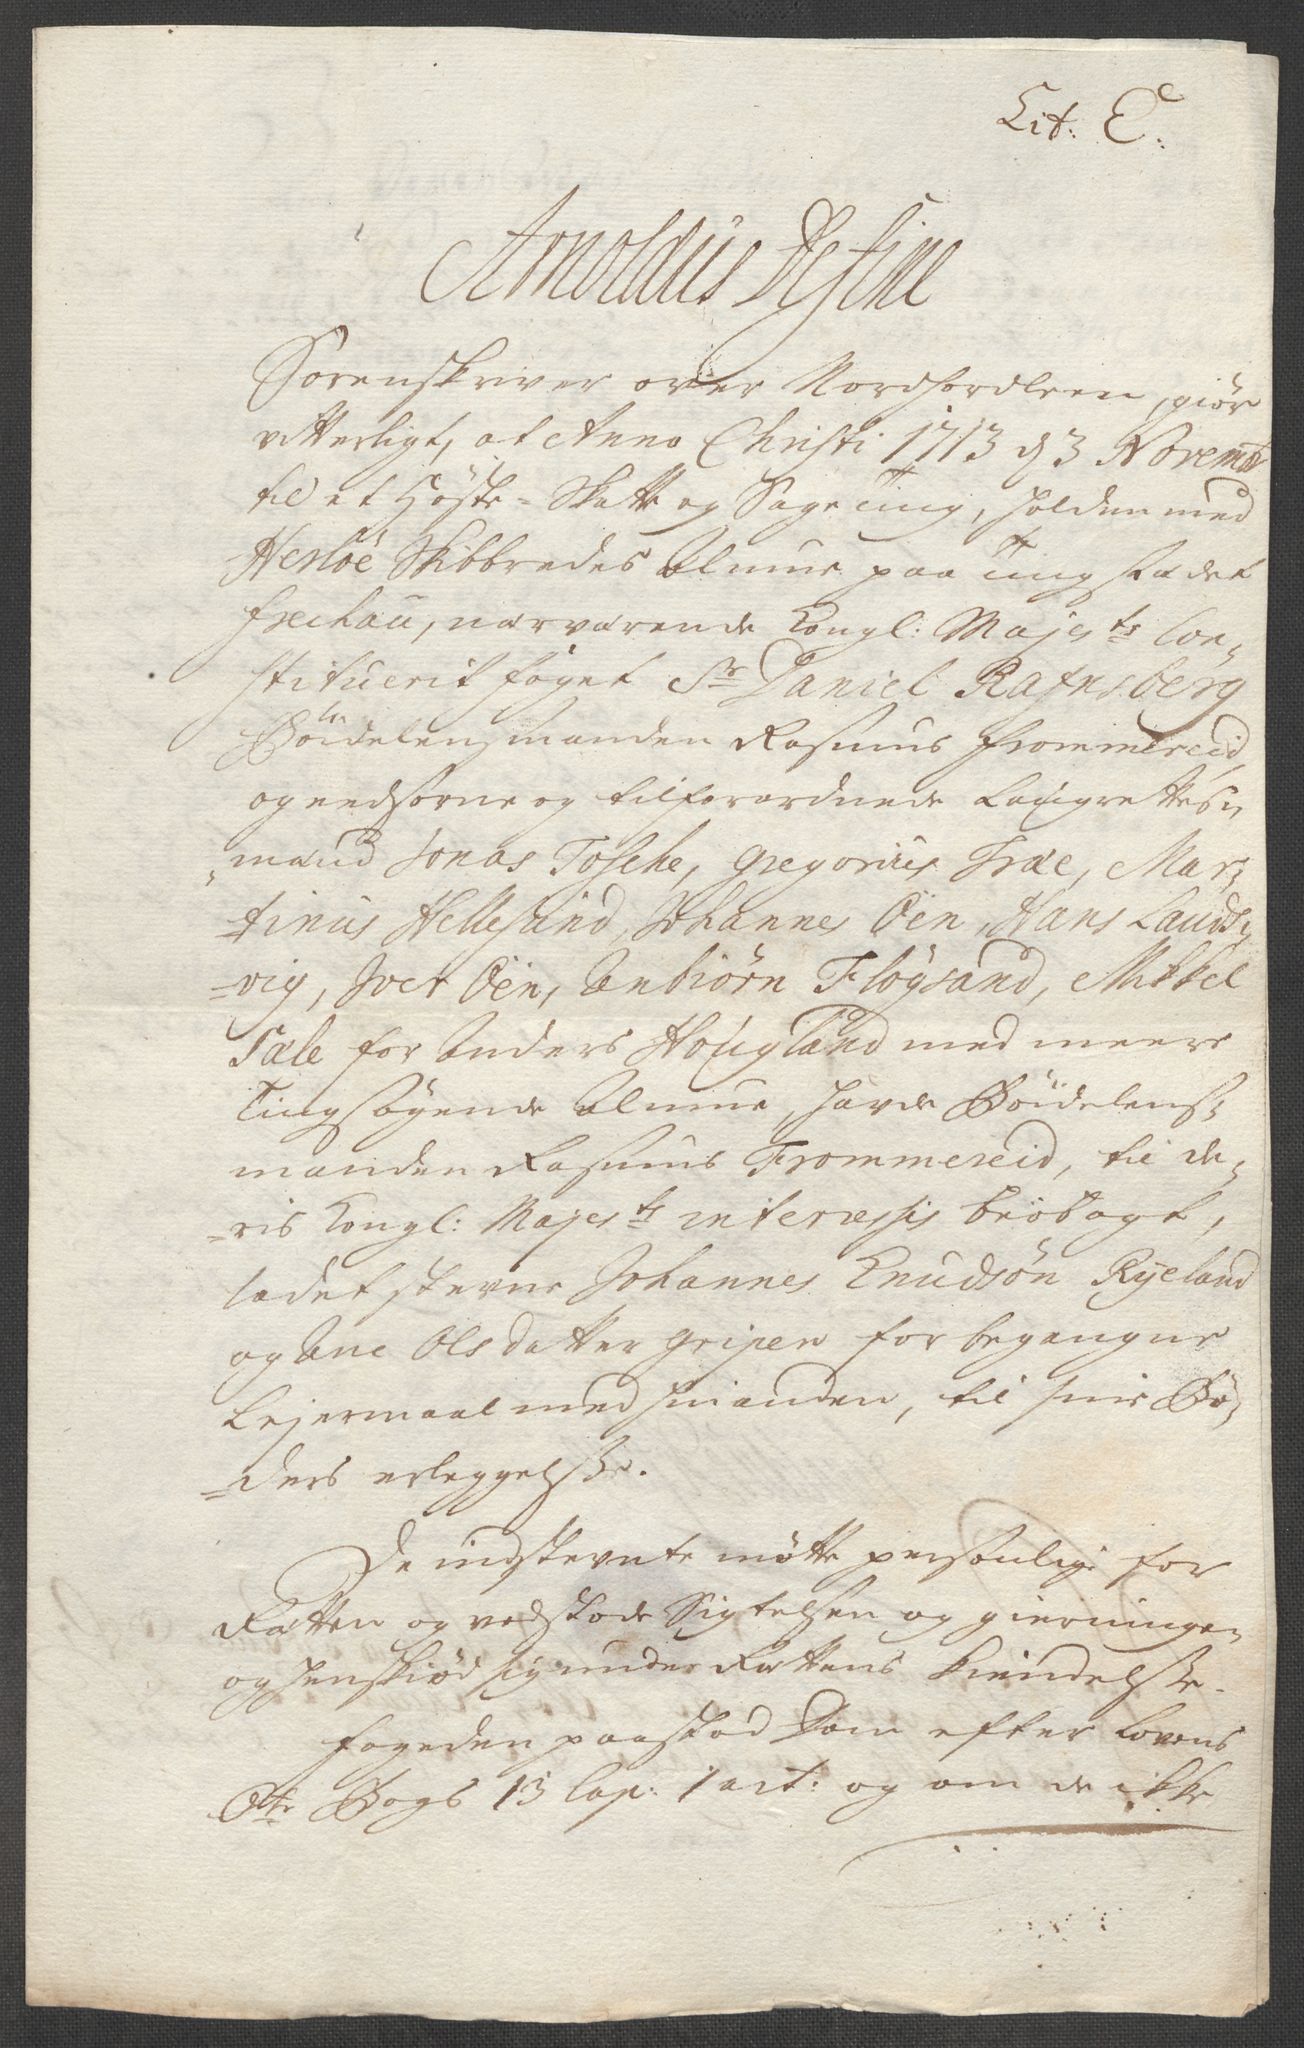 Lit: E.
Arnoldus de Fine
Sorenskriver over Nordhordleen, giør
vitterligt, at Anno Christi 1713 d 3 Novemb
til et Høste-Skatte og Sage Ting, holden med
Herløe Skibbredes Almue paa Tingstædet
Frechau, nærværende Kongl: Majests Con-
stituerit foget Sr Daniel Rafnsberg
Bøidelensmanden Rasmus Frommereid,
og eedsorne og tilforordnede Laugrettes-
mænd Jonas Tosche, Gregorius Træe, Mar-
tinus Hellesund, Johannes Øen, Hans Lands-
vig, Iver Øen, Anbiørn Fløysand, Mikkel
Sæle for Anders Hougland med meere
Tingsøgende Almue, hafde Bøidelens-
manden Rasmus Frommereid, til de-
ris Kongl: Majests interessis iobagt,
ladet stevne Johannes Knudsøn Ryeland
og Ane Olsdatter Gripen for begangne
Lejermaal med hinanden, til hvis Bø-
ders erleggelsse.
De indstevnte møtte personlig for
Rætten og vedstode Sigtelsen og gierningen
og henskiød sig under Rættens Kiendelsse.
Fogeden paastod Dom efter Lovens
6te Bogs 13 Cap: 1 art: og om de ikke